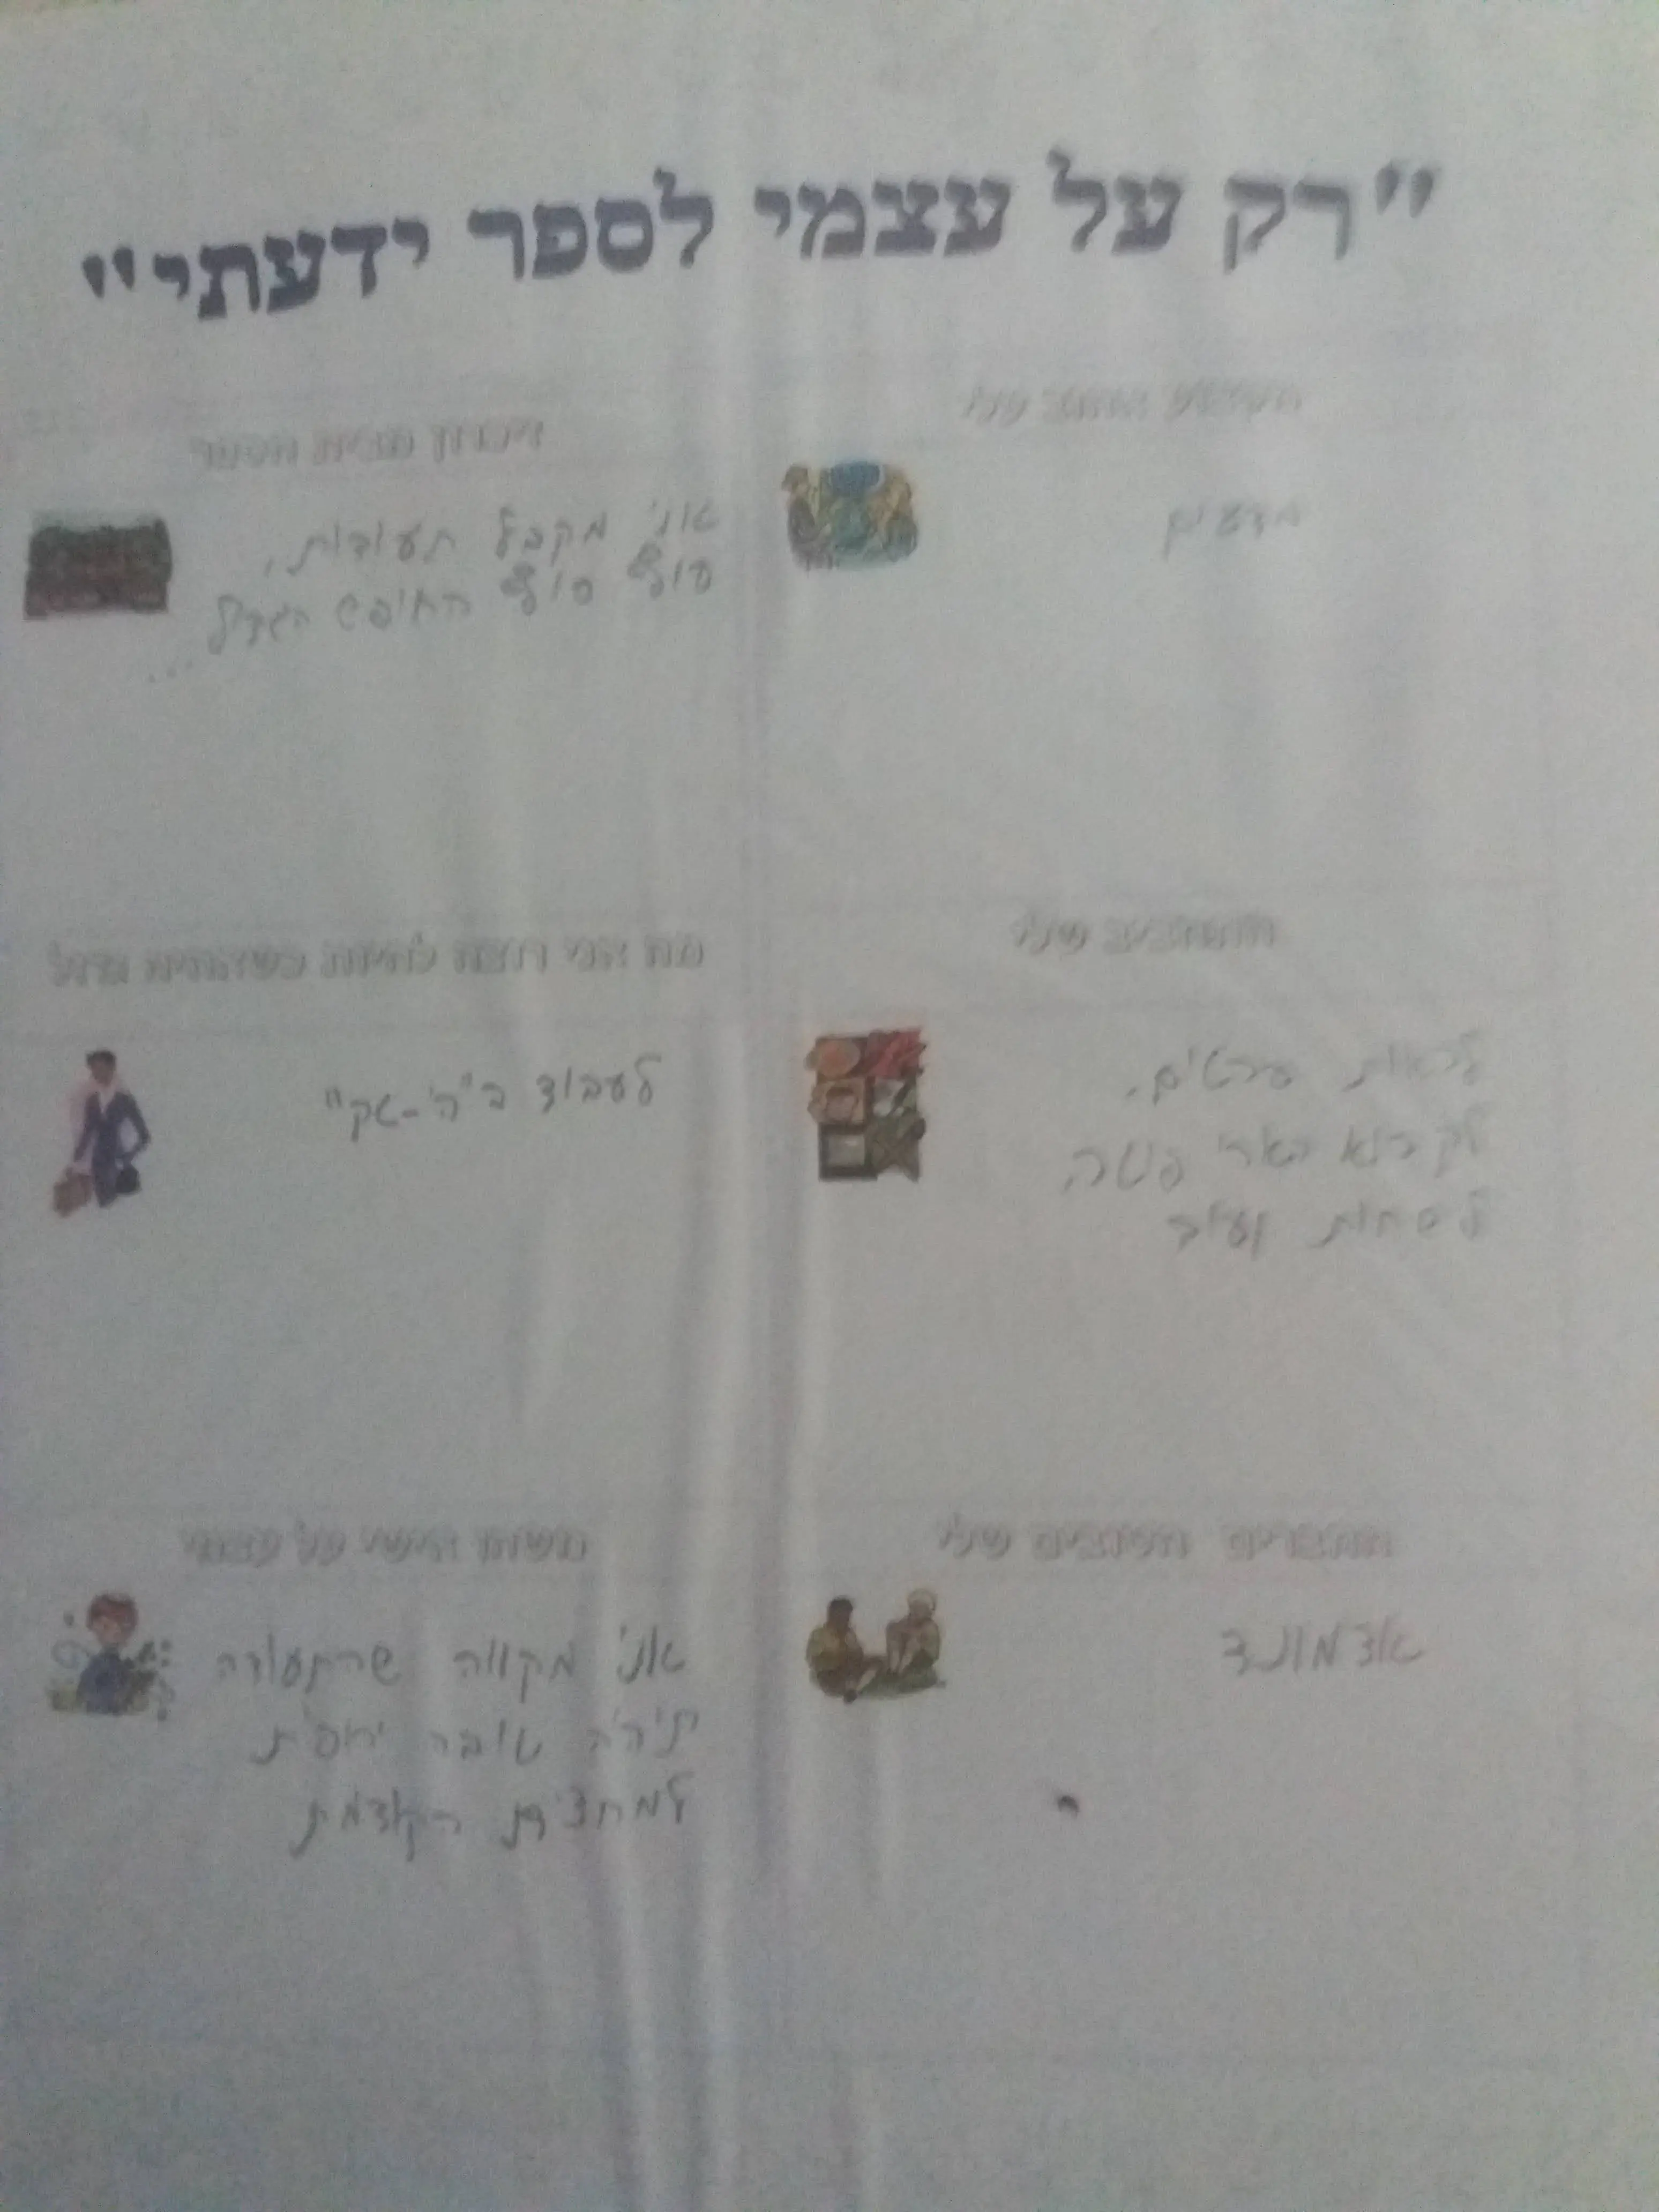 "רק על עצמי לספר ידעתי"
המקצוע האהוב עלי
מדעים
זיכרון מבית הספר
אני מקבל תעודות,
סוף סוף החופש הגדול...
התחביב שלי
לראות סרטים,
לקרוא הארי פוטר,
לשחות
מה אני רוצה להיות כשאהיה גדול
לעבוד ב"הי-טק"
החברים הטובים שלי
אדמונד
משהו אישי על עצמי
אני מקווה שהתעודה
תהיה טובה יחסית
למחצית הקודמת